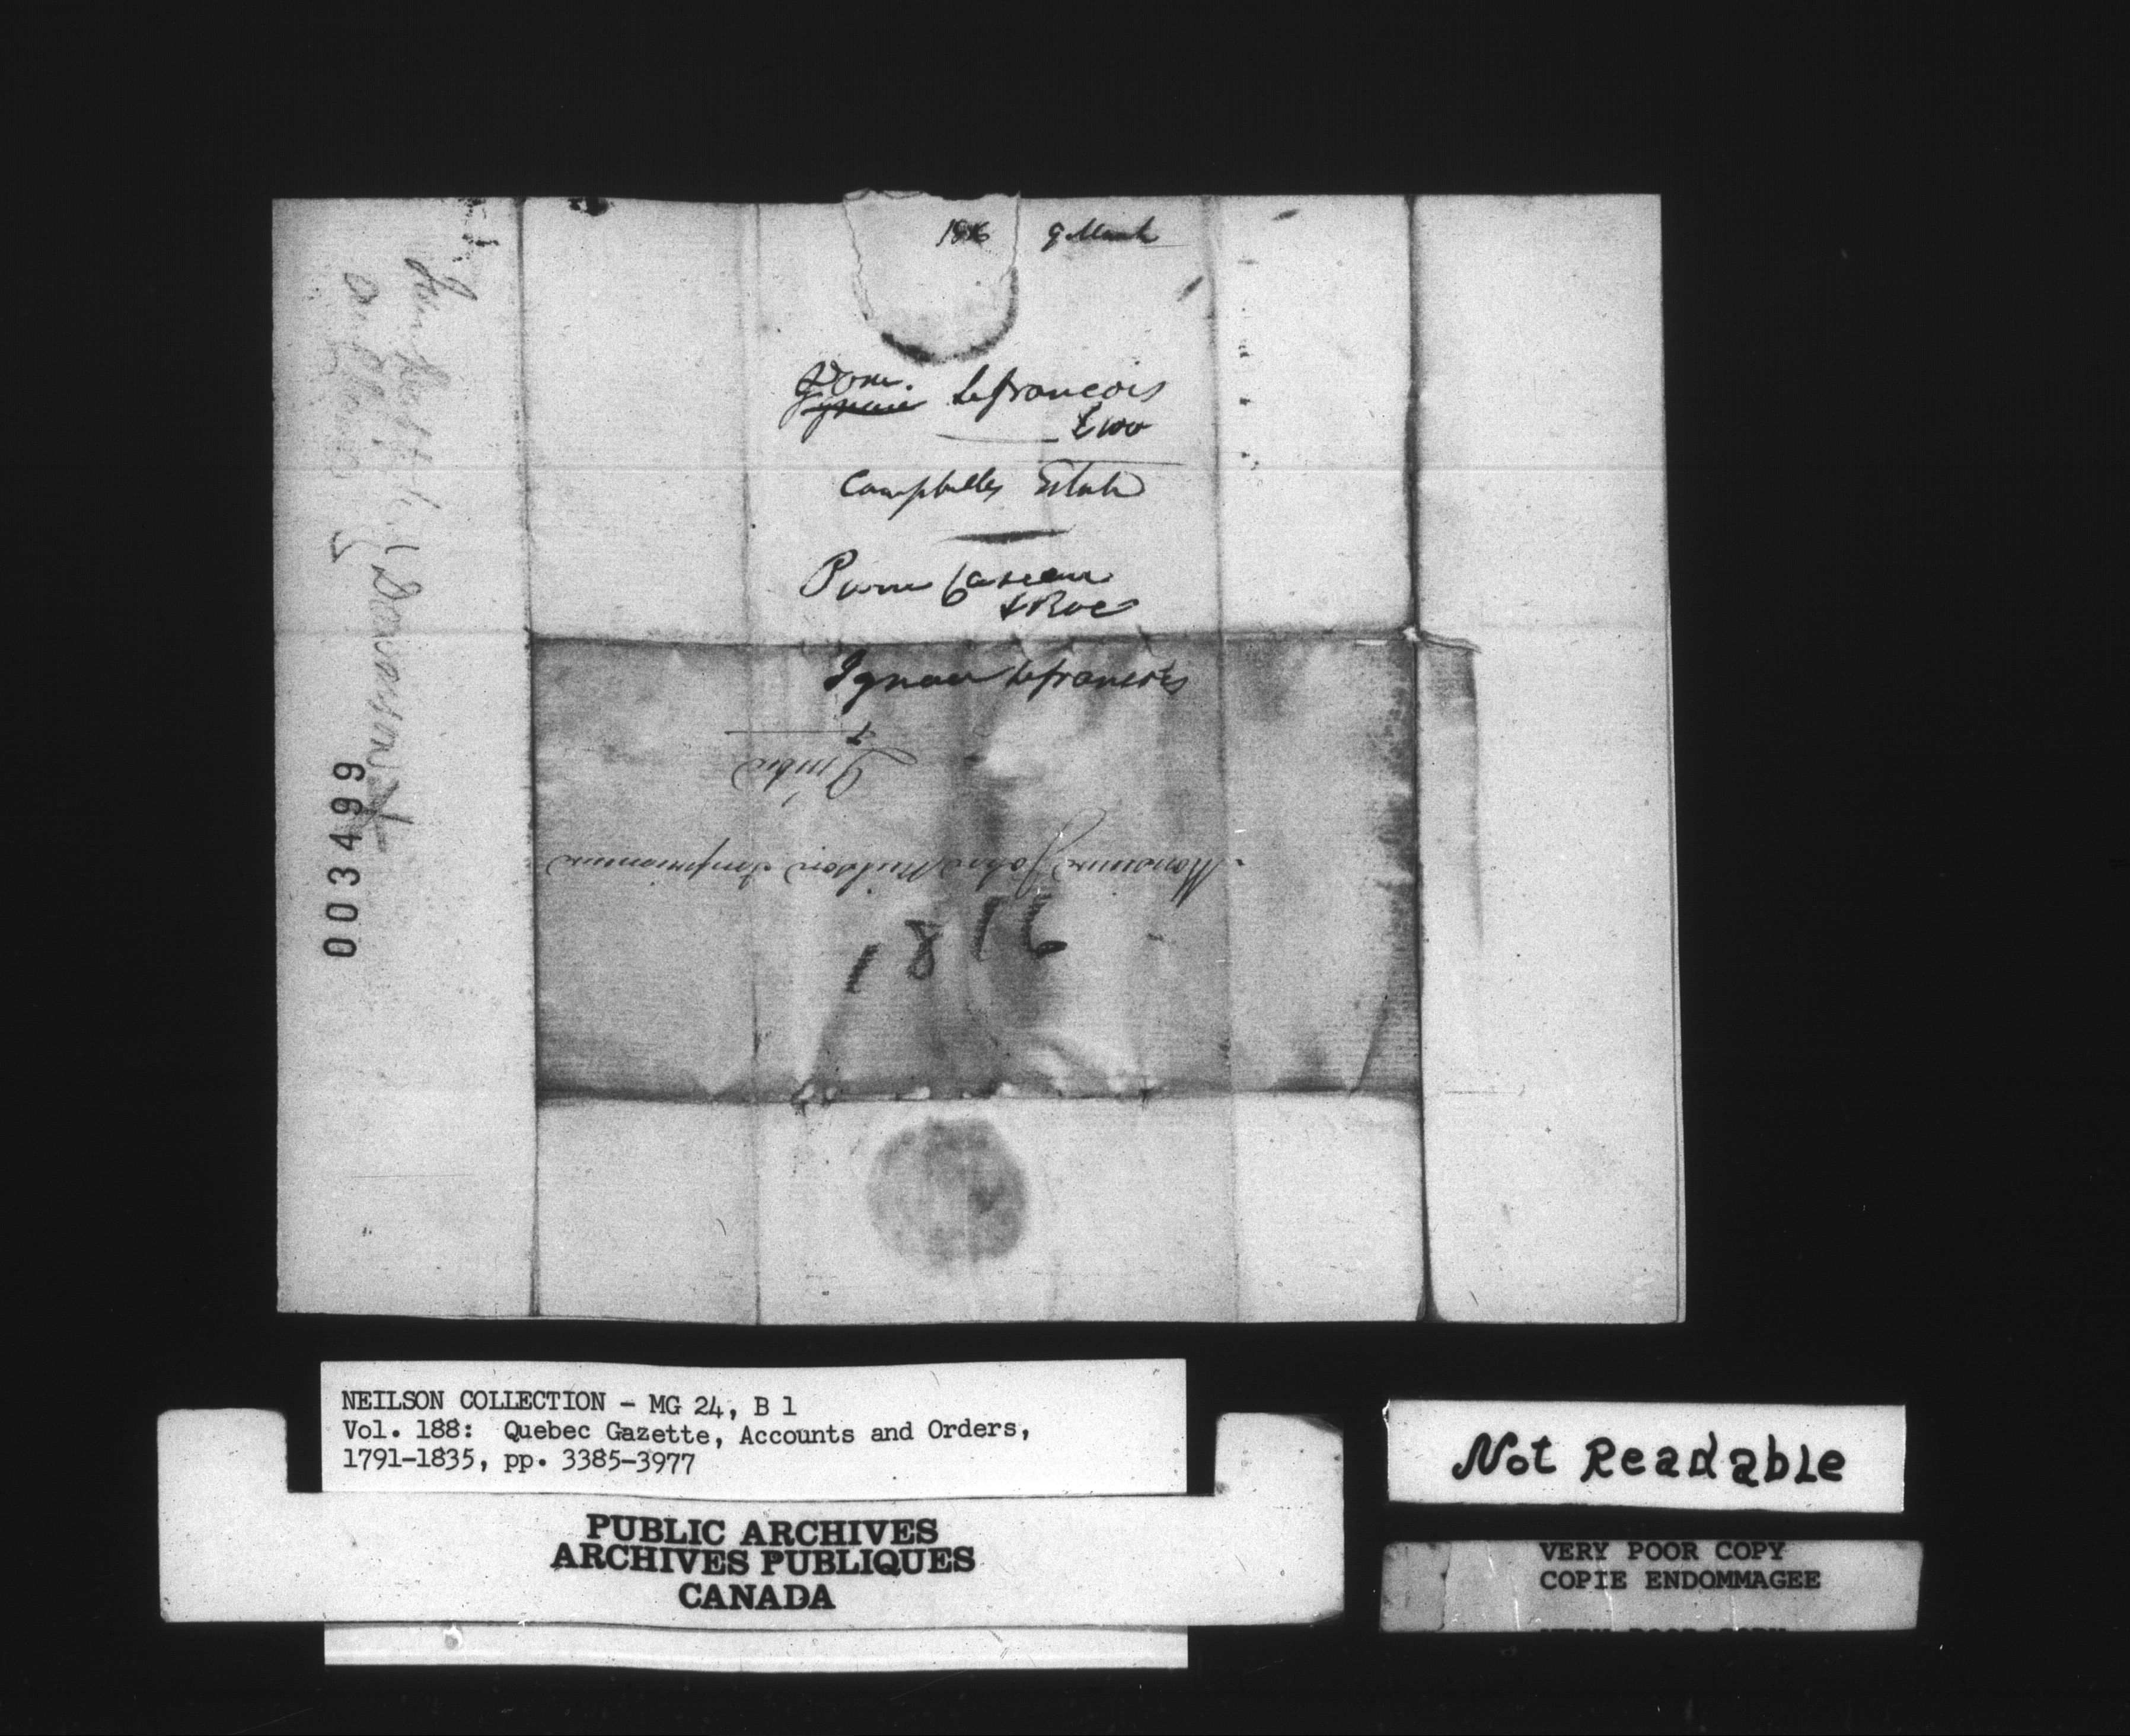 1816 9 March
Dom.
Ignace Lefrancois
£100
Campbells Estate
Pierre Caseau
& Roe
Ignace Lefrancois
à
Québec
Monsieur John Neilson Imprimeur
1816
003499
NEILSON COLLECTION - MG 24, B 1
Vol. 188: Quebec Gazette, Accounts and Orders,
1791-1835, pp. 3385-3977
PUBLIC ARCHIVES
ARCHIVES PUBLIQUES
CANADA
Not Readable
VERY POOR COPY
COPIE ENDOMMAGEE